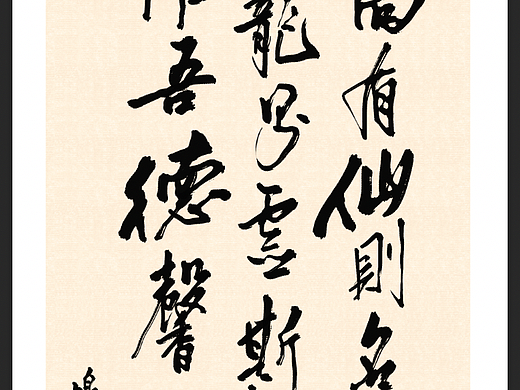 高有仙則名
龍則霊斯
吾德馨